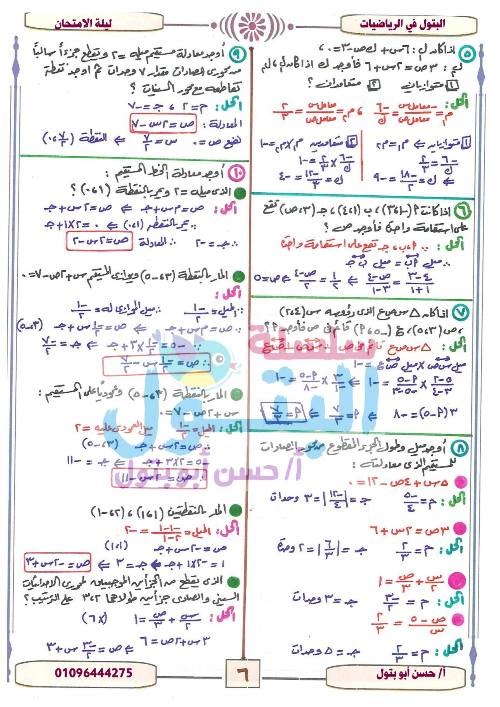 البتول في الرياضيات
ليلة الامتحان
٥ إذا كان ل١ : ٦س + ك ص - ٣ = ٠ ،
ل٢ : ٣ص = ٢س + ٦ فأوجد ك إذا كان ل١ ، ل٢
١ متوازيان ٢ متعامدان ؟
الحل : م١ = -معامل س / معامل ص = -٦/ك ، م٢ = ٢/٣
١ متوازيان ⇐ م١ = م٢
-٦/ك = ٢/٣
ك = -١٨/٢ = -٩
٢ متعامدين م١ × م٢ = -١
-٦/ك × ٢/٣ = -١
ك = -١٢/-٣ = ٤
تقع
على استقامة واحدة فأوجد ص ؟
الحل :
∴ ميل أب = ميل ب جـ
٤-٣/١+١ = ص-٤/٣-١
١/٢ = ص-٤/٢ ⇐ ص = ٥
٧ إذا كان △ س ص ع الذي رؤوسه س (٤،٢)
، ص (٣،٥) ، ع (-٥، م) قائم في ص فأوجد م ؟
الحل :
٣(م-٥) = -٨
٨ أوجد ميل وطول الجزء المقطوع من محور الصادات
للمستقيم الذي معادلته :
٥س + ٤ص - ١٢ = ٠
الحل : م = -٥/٤ جـ = |-١٢/٤| = ٣ وحدات
٣ص = ٢س + ٦
الحل : م = ٢/٣ جـ = |٦/٣| = ٢ وحدة
س/٢ + ص/٣ = ١
الحل : م = -٣/٢ جـ = ٣ وحدات
ص - ٥/س = ٢/٣
الحل : م = ٢/٣ جـ = ٥ وحدات
٩ أوجد معادلة مستقيم ميله = ٢ ويقطع جزءاً سالباً
من محور الصادات مقداره ٧ وحدات ثم أوجد نقطة
تقاطعه مع محور السينات ؟
الحل : م = ٢ ، جـ = -٧
المعادلة : ص = ٢س - ٧
نضع ص = ٠ ⇐ س = ٧/٢ ⇐ النقطة (٧/٢ ، ٠)
١٠ أوجد معادلة الخط المستقيم :
الذي ميله = ٢ ويمر بالنقطة (١،٠)
الحل : ص = م س + جـ ⇐ ص = ٢س + جـ
∵ يمر بالنقطة (١،٠) ⇐ ٠ = ٢×١ + جـ
∴ جـ = -٢ ∴ المعادلة ص = ٢س - ٢
المار بالنقطة (٣،-٥) ويوازي المستقيم س + ٢ص - ٧ = ٠
الحل : الميل = -١/٢ ∴ ميل الموازي له = -١/٢
-٥ = -١/٢ × ٣ + جـ ⇐ جـ = -٧/٢
المار بالنقطة (٣،-٥) وعمودياً على المستقيم :
س + ٢ص - ٧ = ٠
الحل : الميل = -١/٢ ميل العمودي عليه = ٢
ص = ٢س + جـ (٣،-٥)
-٥ = ٢×٣ + جـ ⇐ جـ = -١١
∴ ص = ٢س - ١١
المار بالنقطتين (١،١) ، (٢،-١)
الحل : الميل = -١-١/٢-١ = -٢
ص = -٢س + جـ (١،١)
١ = -٢×١ + جـ ⇐ جـ = ٣ ⇐ ص = -٢س + ٣
الذي يقطع من الجزأين الموجبين لمحوري الإحداثيات
السيني والصادي جزأين طولاهما ٢ ، ٣ على الترتيب ؟
الحل : س/٢ + ص/٣ = ١ (×٦)
٣س + ٢ص = ٦ ⇐ ص = -٣/٢ س + ٣
سلسلة
البتول
أ/ حسن أبو بتول
أ/ حسن أبو بتول
٦
01096444275